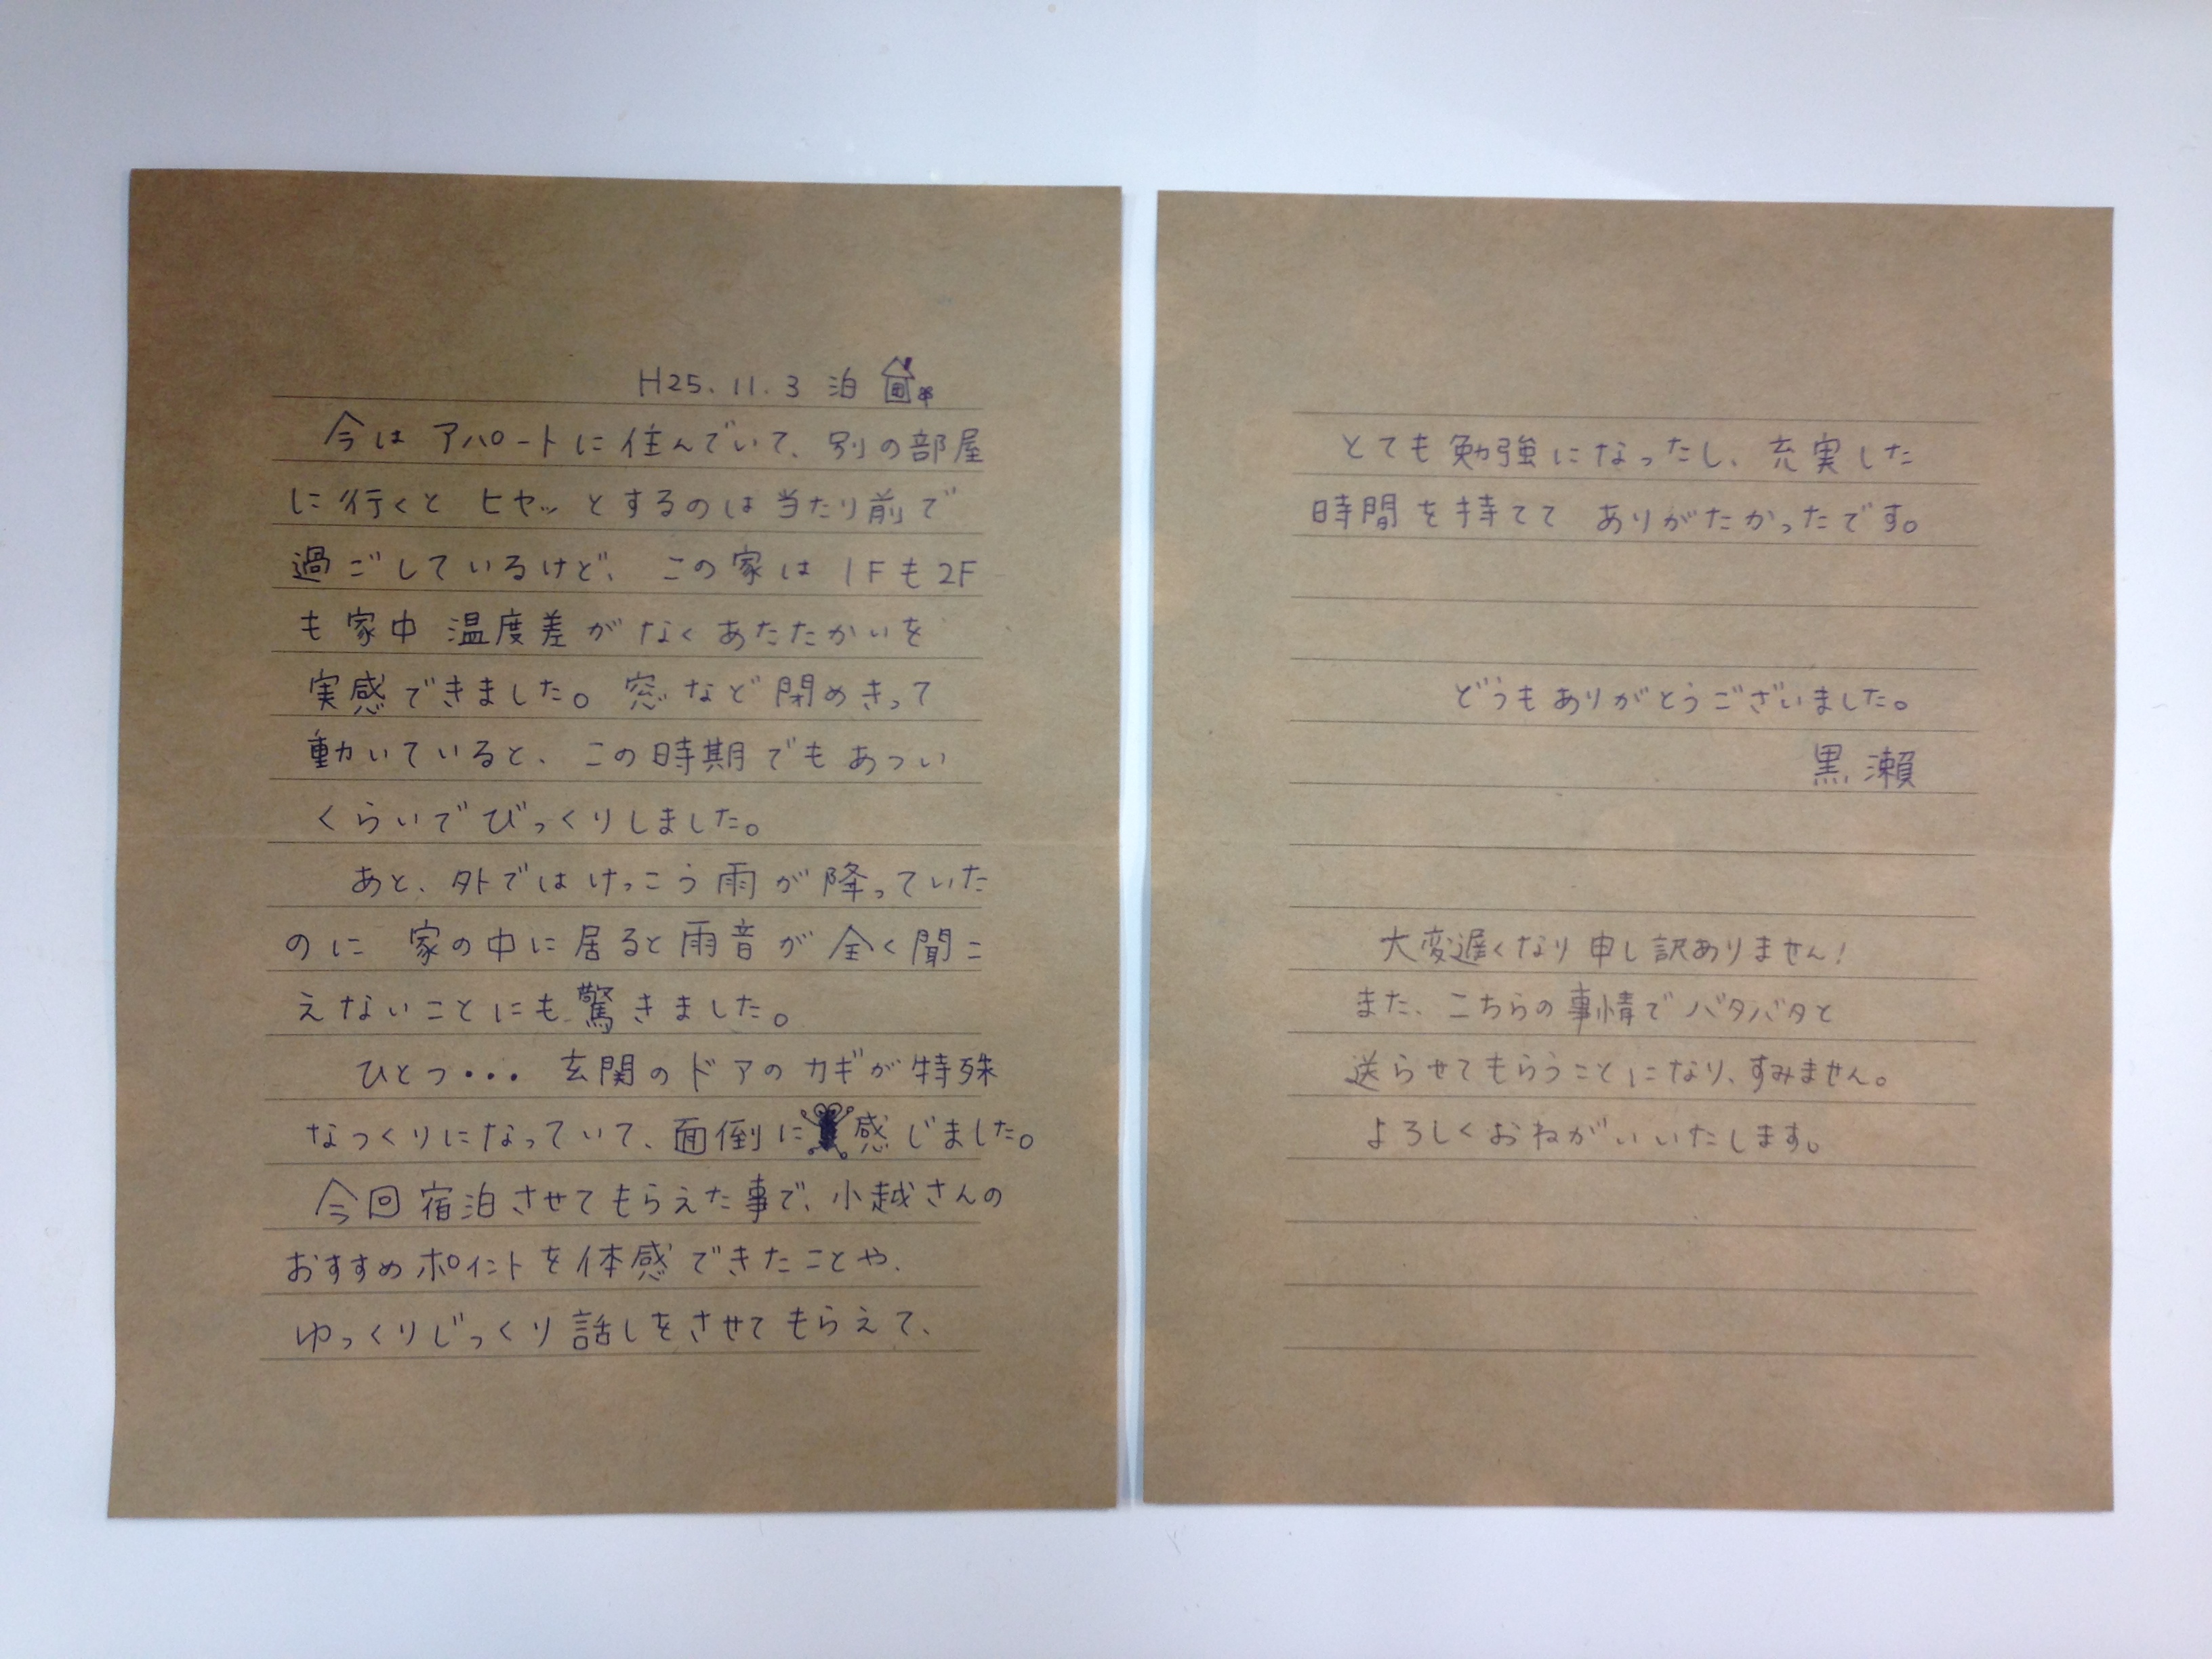 H25.11.3 泊
今は アパートに住んでいて、別の部屋
に行くと ヒヤッとするのは当たり前で
過ごしているけど、この家は 1Fも2F
も家中 温度差がなくあたたかいを
実感できました。窓など閉めきって
動いていると、この時期でもあつい
くらいでびっくりしました。
あと、外ではけっこう雨が降っていた
のに 家の中に居ると雨音が全く聞こ
えないことにも驚きました。
ひとつ・・・ 玄関のドアのカギが特殊
なつくりになっていて、面倒に感じました。
今回宿泊させてもらえた事で、小越さんの
おすすめポイントを体感できたことや、
ゆっくりじっくり話しをさせてもらえて、
とても勉強になったし、充実した
時間を持てて ありがたかったです。
どうもありがとうございました。
黒瀬
大変遅くなり申し訳ありません!
また、こちらの事情でバタバタと
送らせてもらうことになり、すみません。
よろしくおねがいいたします。